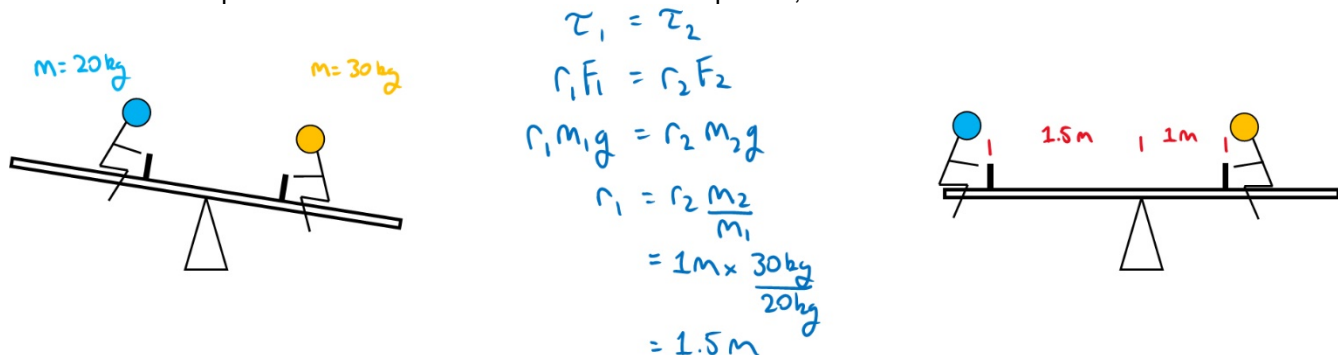 m = 20 kg
m = 30 kg
τ₁ = τ₂
r₁F₁ = r₂F₂
r₁m₁g = r₂m₂g
r₁ = r₂ m₂/m₁
= 1m × 30kg/20kg
= 1.5m
1.5m
1m